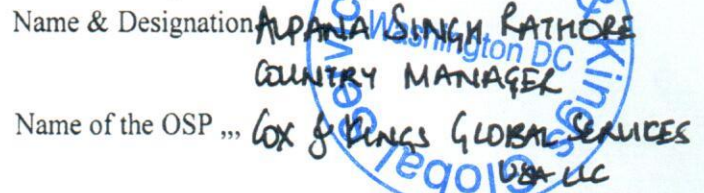 Name & Designation ALPANA SINGH RATHORE
COUNTRY MANAGER
Name of the OSP ,,, COX & KINGS GLOBAL SERVICES
USA LLC
Washington DC
& Kings Global